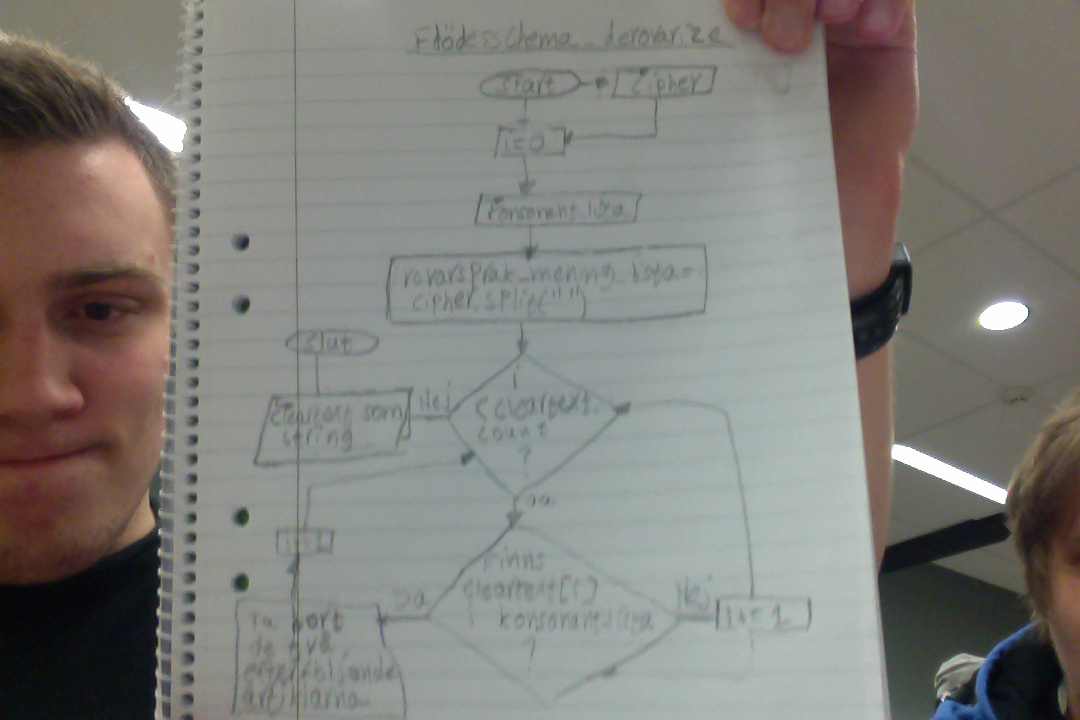 Flödesschema_derovarize
Start
Cipher
i=0
konsonant.lista
rovarsprak_mening_lista=
cipher.split(" ")
Slut
cleartext som
string
Nej
i
< cleartext.
count
?
Ja
Finns
cleartext[i]
i konsonantlista
?
Nej
i+=1
Ja
Ta bort
de två
efterföljande